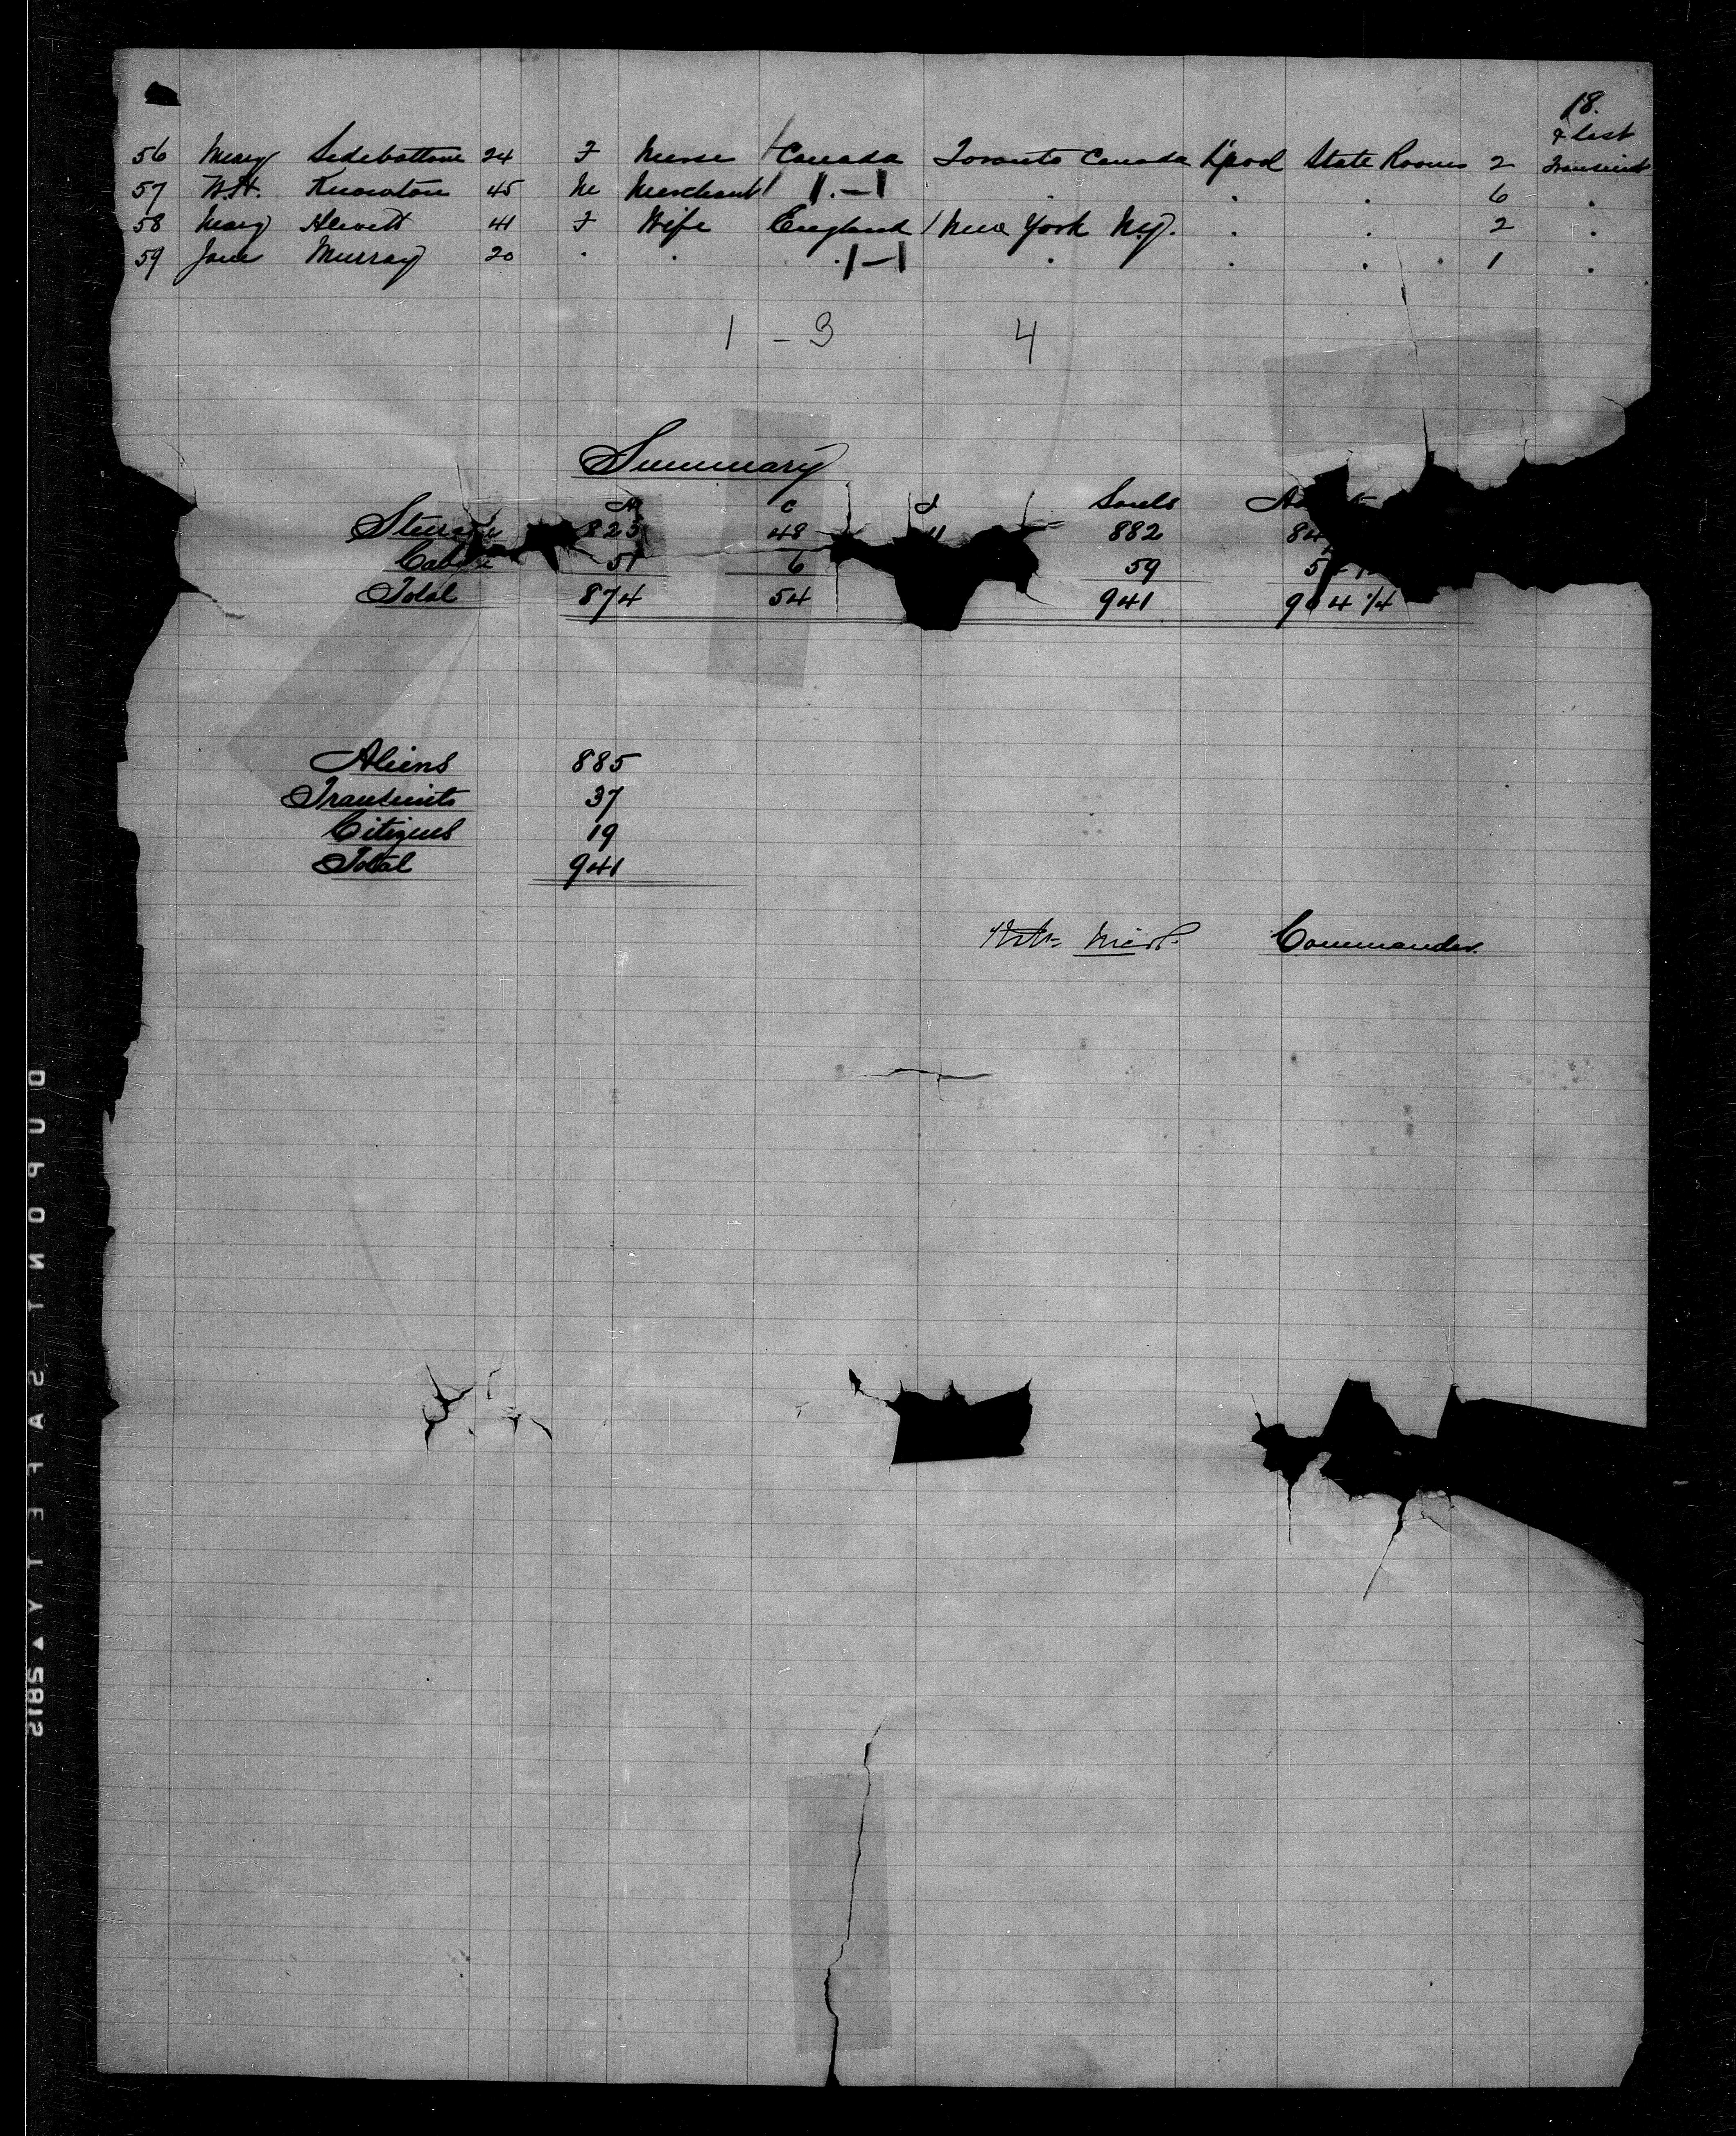 18.
& last
56 Mary Sidebottom 24 F Nurse Canada Toronto Canada L'pool State Rooms 2 Transient
57 W.H. Knowton 45 M Merchant 1 - 1 . . . 6 .
58 Mary Hewett 41 F Wife England New York N.Y. . . 2 .
59 Jane Murray 20 . . . 1 - 1 . . . . 1 .
1 - 3 4
Summary
A C I Souls
823 48 11 882
51 6 59
Total 874 54 941 904 1/4
Aliens 885
Transients 37
Citizens 19
Total 941
Commander.
SAFETY ▲ 5812